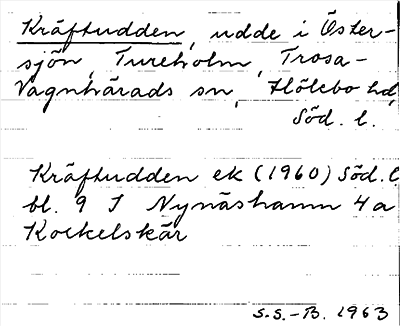 Kräftudden, udde i Öster-
sjön, Tureholm, Trosa-
Vagnhärads sn, Hölebo hd,
Söd. l.
Kräftudden ek (1960) Söd. l
bl. 9 I Nynäshamn 4a
Kockelskär
S.S.-B. 1963